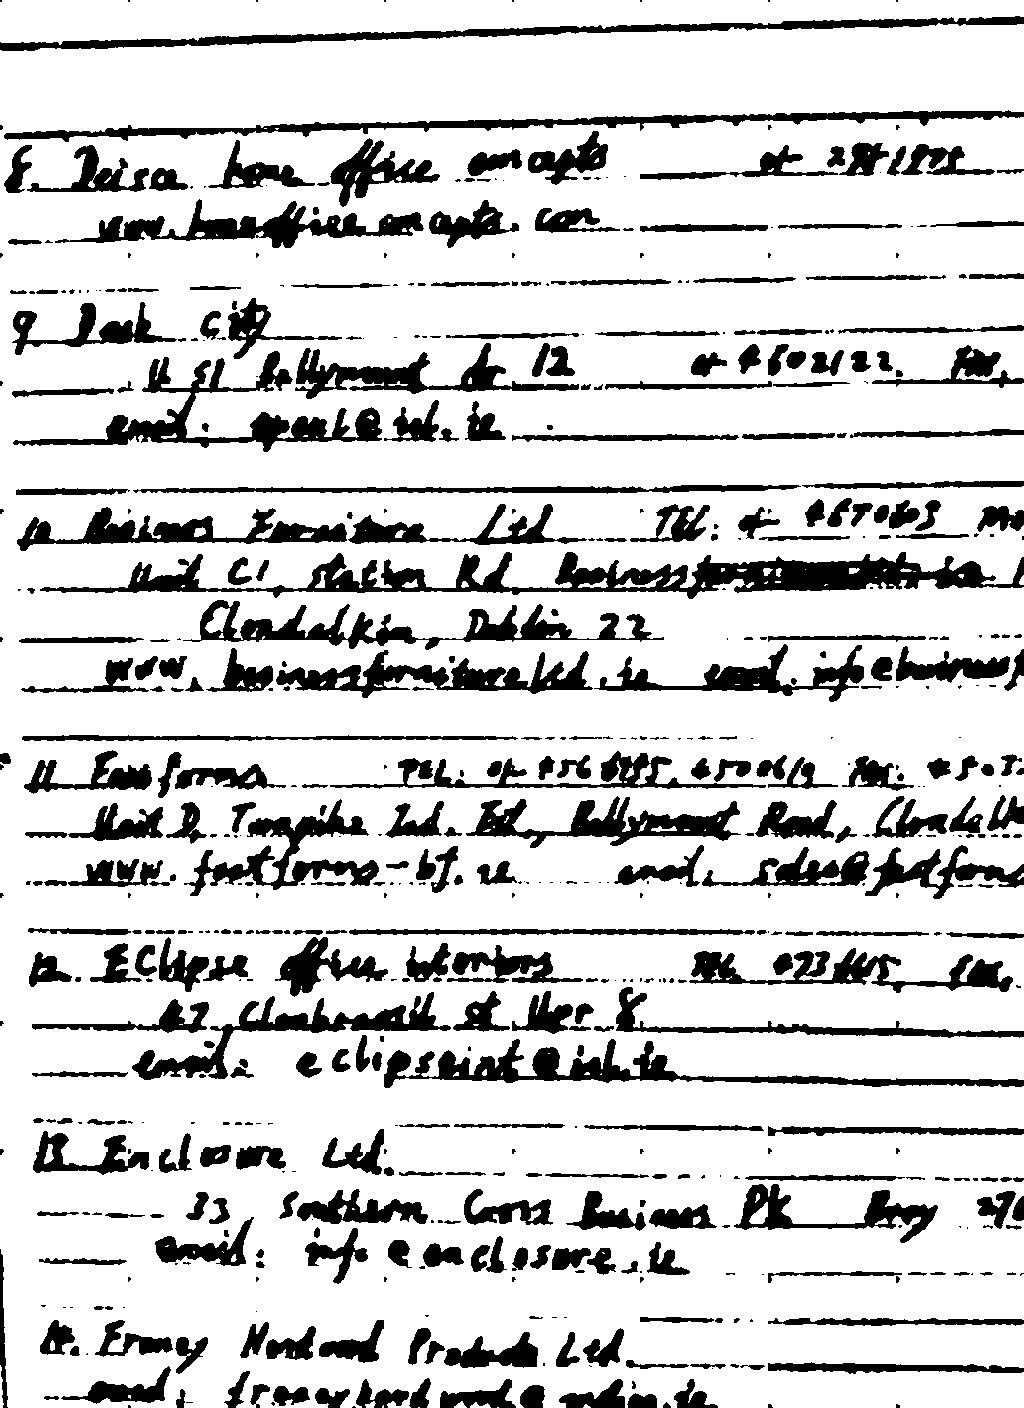 8. Deisca home office concepts 01
www.homeoffice.concepts.com
9 Desk city
U 51 Ballymount dr 12 01 4602122. Fax.
email: @iol.ie
10 Business Furniture Ltd TEL: 01 4670603 Mo
Unit C1, station Rd Business
Clondalkin, Dublin 22
www.businessfurnitureltd.ie email. info@businessf
11 TEL: 01 Fax.
Unit D, Turnpike Ind. Est., Ballymount Road, Clondalk
www. email. sales@
12. EClipse office interiors TEL Fax.
47 Clanbrassil st Uppr 8
email: eclipseint@iol.ie
13 Enclosure Ltd.
33 Southern Cross Business PK Bray 276
email: info@enclosure.ie
14. Franey Hardwood Products Ltd.
email: franeyhardwood@indigo.ie